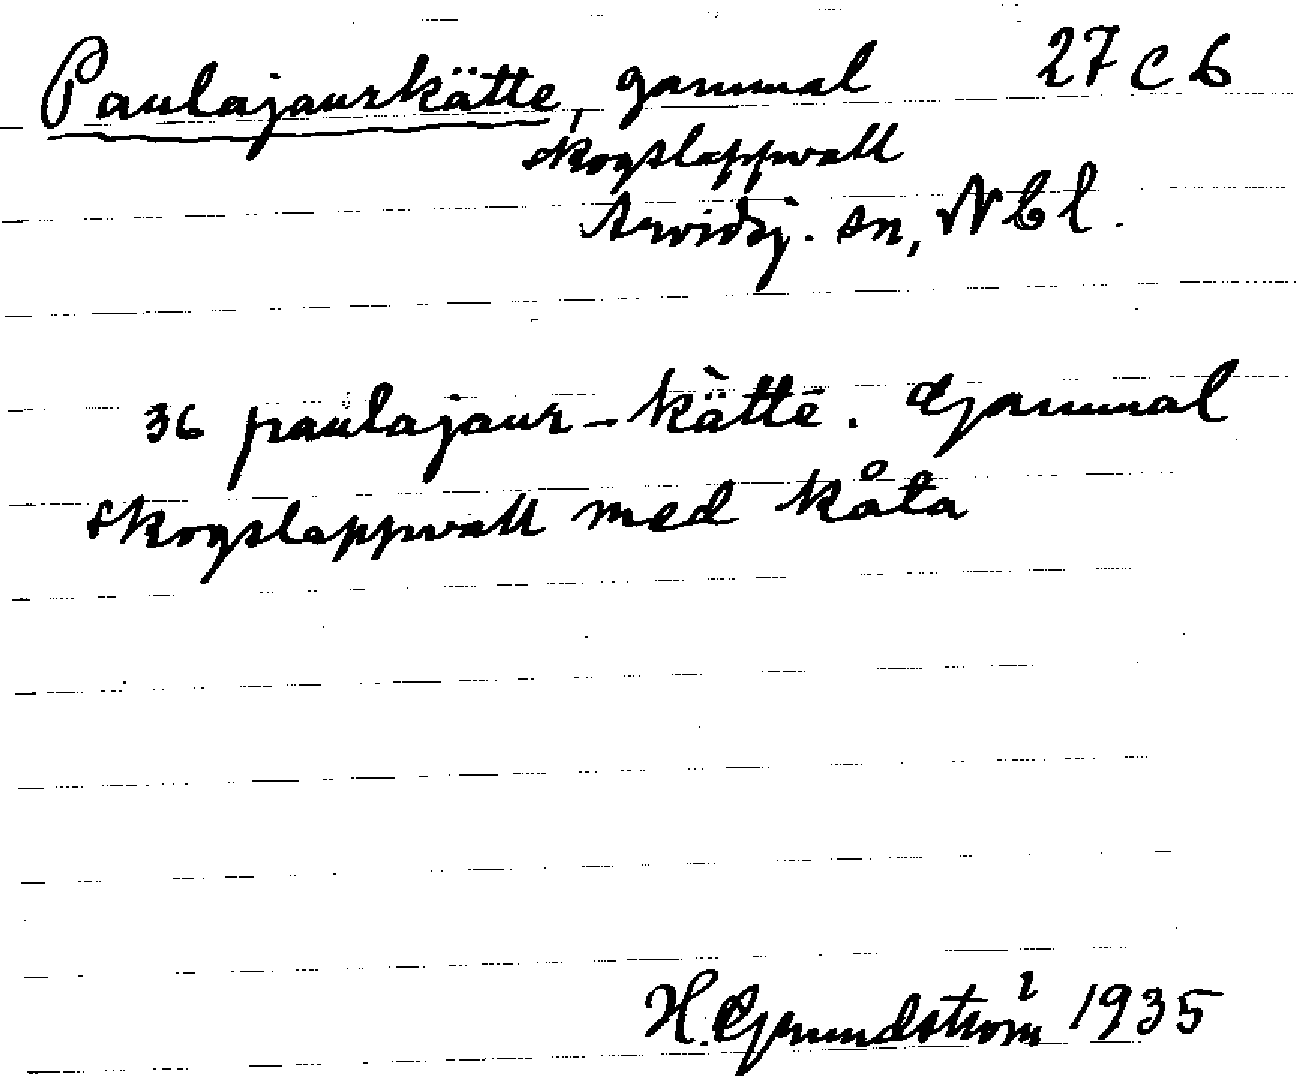 Paulajaurkätte, gammal 27 C b
skogslappvall
Arvidsj. sn, Nbl.
36 paulajaur-kä̀ttē. Gammal
skogslappvall med kåta
H. Grundström 1935